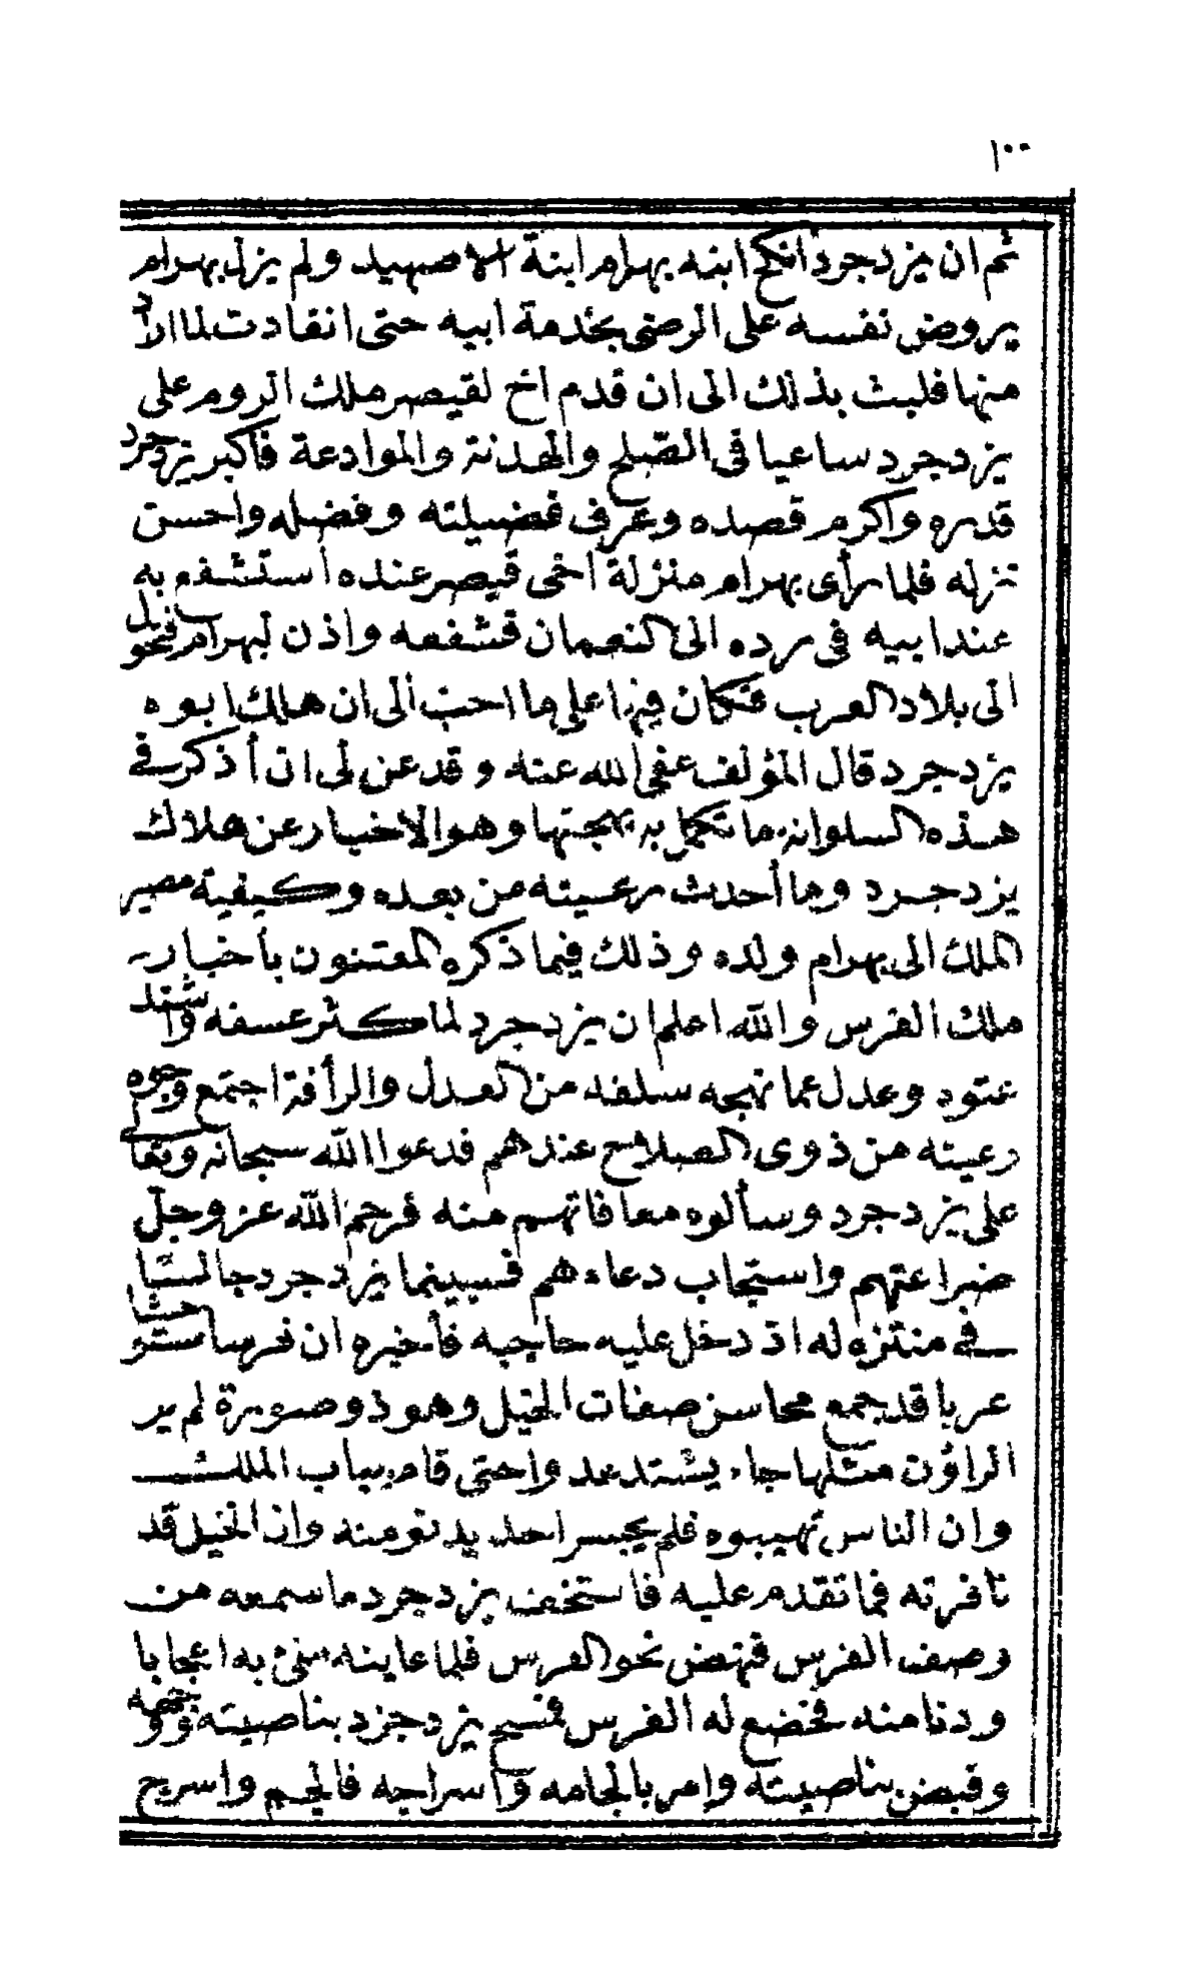 ١٠٠
ثم ان يزدجرد أنكح ابنه بهرام ابنة الاصهبد ولم يزل بهرام
يروض نفسه على الرضى بخدمة ابيه حتى انقادت لما اراد
منها فلبث بذلك الى ان قدم أخ لقيصر ملك الروم على
يزدجرد ساعيا في الصلح والهدنة والموادعة فأكبر يزدجرد
قدره وأكرم قصده وعرف فضيلته وفضله واحسن
تنزله فلما رأى بهرام منزلة أخى قيصر عنده أستشفع به
عند ابيه في رده الى النعمان فشفعه واذن لبهرام فتحول
الى بلاد العرب فكان فيها على ما احب الى ان هلك ابوه
يزدجرد قال المؤلف عفى الله عنه وقد عن لى ان أذكر في
هذه السلوانة ما تكمل به بهجتها وهو الاخبار عن هلاك
يزدجرد وما أحدث رعيته من بعده وكيفية مصير
الملك الى بهرام ولده وذلك فيما ذكره المعتنون بأخبار
ملك الفرس والله اعلم ان يزدجرد لما كثر عسفه واشتد
عتوه وعدل عما نهجه سلفه من العدل والرأفة اجتمع وجوه
رعيته من ذوى الصلاح عندهم فدعوا الله سبحانه وتعالى
على يزدجرد وسألوه معافاتهم منه فرحم الله عز وجل
ضراعتهم واستجاب دعاءهم فبينما يزدجرد جالسا
في منتزه له اذ دخل عليه حاجبه فأخبره ان فرسا مستوحشا
عريا قد جمع محاسن صفات الخيل وهو ذو صورة لم ير
الراؤن مثلها جاء يشتد عدوا حتى قام بباب الملك
وان الناس تهيبوه فلم يجسر احد يدنو منه وان الخيل قد
نافرته فما تقدم عليه فاستخف يزدجرد ما سمعه من
وصف الفرس فنهض نحو الفرس فلما عاينه منئ به اعجابا
ودنا منه فخضع له الفرس فمسح يزدجرد بناصيته ووجهه
وقبض بناصيته وامر بالجامه وأسراجه فالجم واسرج